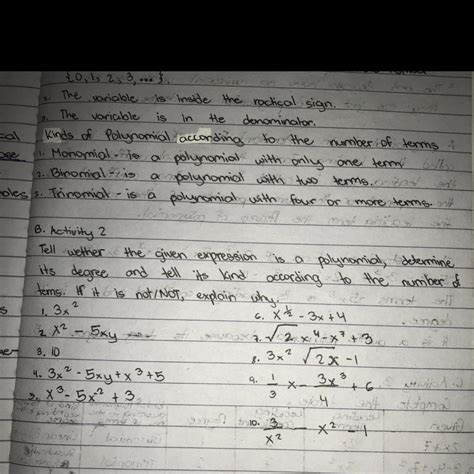 {0, 1, 2, 3, ...}.
1. The variable is inside the radical sign.
2. The variable is in the denominator.
Kinds of Polynomial according to the number of terms
1. Monomial - is a polynomial with only one term
2. Binomial - is a polynomial with two terms.
3. Trinomial - is a polynomial with four or more terms.
B. Activity 2
Tell wether the given expression is a polynomial, determine
its degree and tell its kind according to the number of
terms. If it is not/NOT, explain why.
1. 3x²
2. x² - 5xy
3. 10
4. 3x² - 5xy + x³ + 5
5. x³ - 5x² + 3
6. x^½ - 3x + 4
7. √2 x⁴ - x⁷ + 3
8. 3x² √2x - 1
9. 1/3 x - 3x³/4 + 6
10. 3/x² - x² - 1